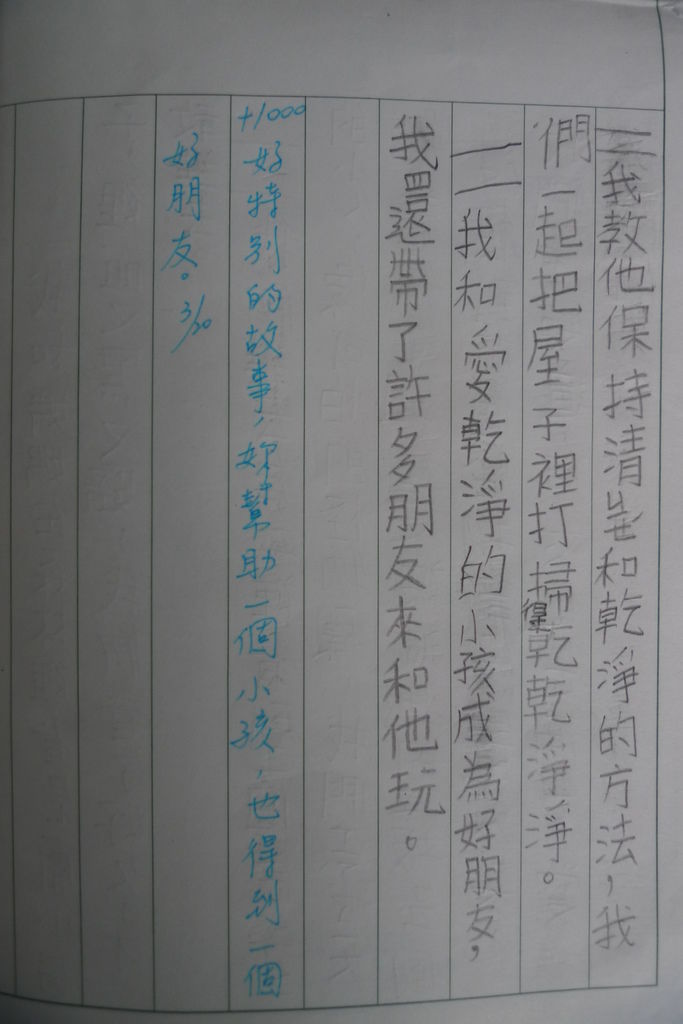 我教他保持清走和乾淨的方法，我
們一起把屋子裡打掃得乾乾淨淨。
我和愛乾淨的小孩成為好朋友，
我還帶了許多朋友來和他玩。
+1000好特別的故事，妳幫助一個小孩，也得到一個
好朋友。3/20